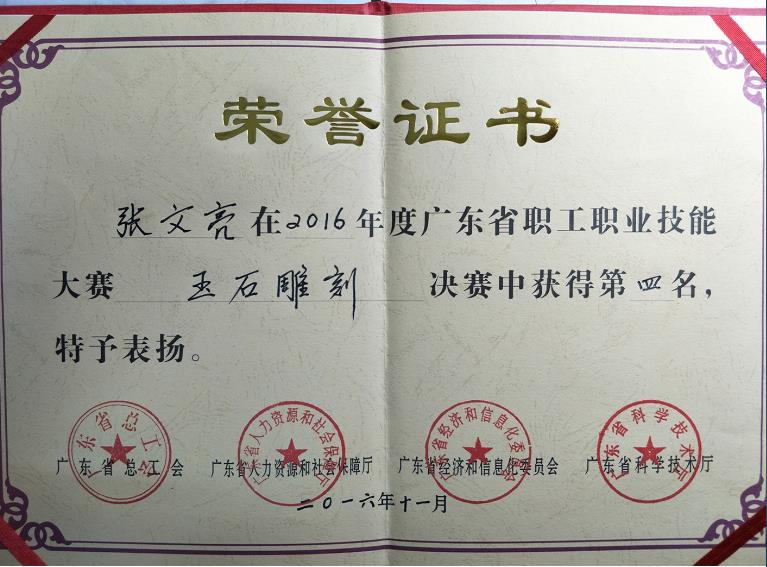 荣誉证书
张文亮在2016年度广东省职工职业技能
大赛 玉石雕刻 决赛中获得第四名，
特予表扬。
广东省总工会 广东省人力资源和社会保障厅 广东省经济和信息化委员会 广东省科学技术厅
二〇一六年十一月
广东省总工会
广东省人力资源和社会保障厅
广东省经济和信息化委员会
广东省科学技术厅